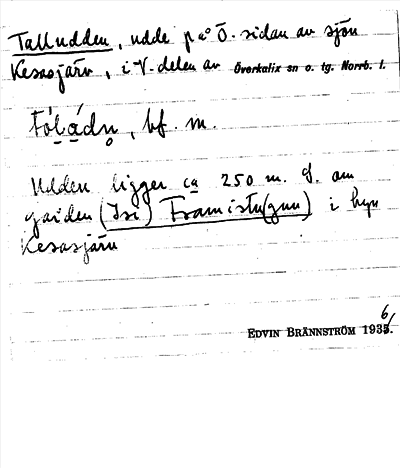 Talludden, udde på Ö. sidan av sjön
Kesasjärv, i V-delen av Överkalix sn o. tg. Norrb. l.
tólạ́dṇ, bf. m.
Udden ligger ca 250 m. S. om
gården (Isi) Framistu(gun) i byn
Kesasjärv
EDVIN BRÄNNSTRÖM 1935.
6/